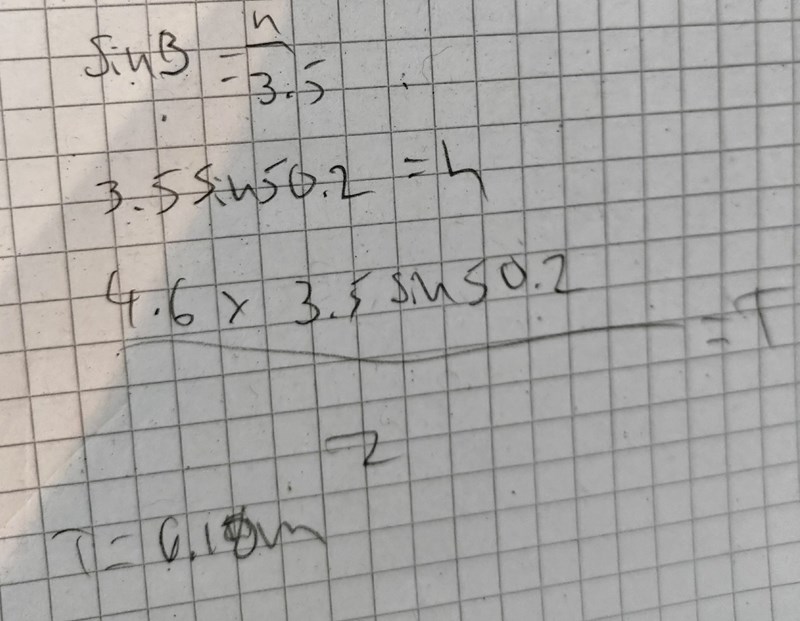 sinB = h/3.5
3.5 sin50.2 = h
4.6 x 3.5 sin50.2 / 2 = T
T = 6.18m